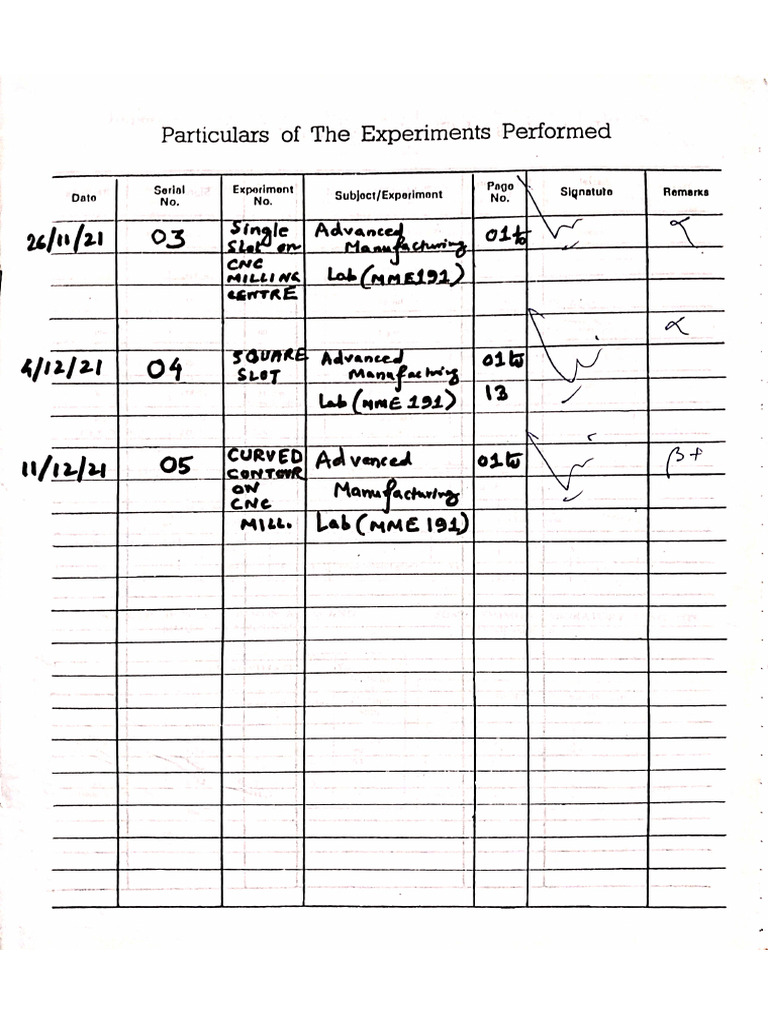 Particulars of The Experiments Performed
Date Serial No. Experiment No. Subject/Experiment Page No. Signature Remarks
26/11/21 03 Single Advanced 01 to α
Slot on Manufacturing
CNC
MILLING Lab (MME191)
CENTRE
α
4/12/21 04 SQUARE Advanced 01 to
SLOT Manufactring 13
Lab (MME 191)
11/12/21 05 CURVED Advanced 01 to β+
CONTOUR
ON Manufacturing
CNC
MILL. Lab (MME 191)